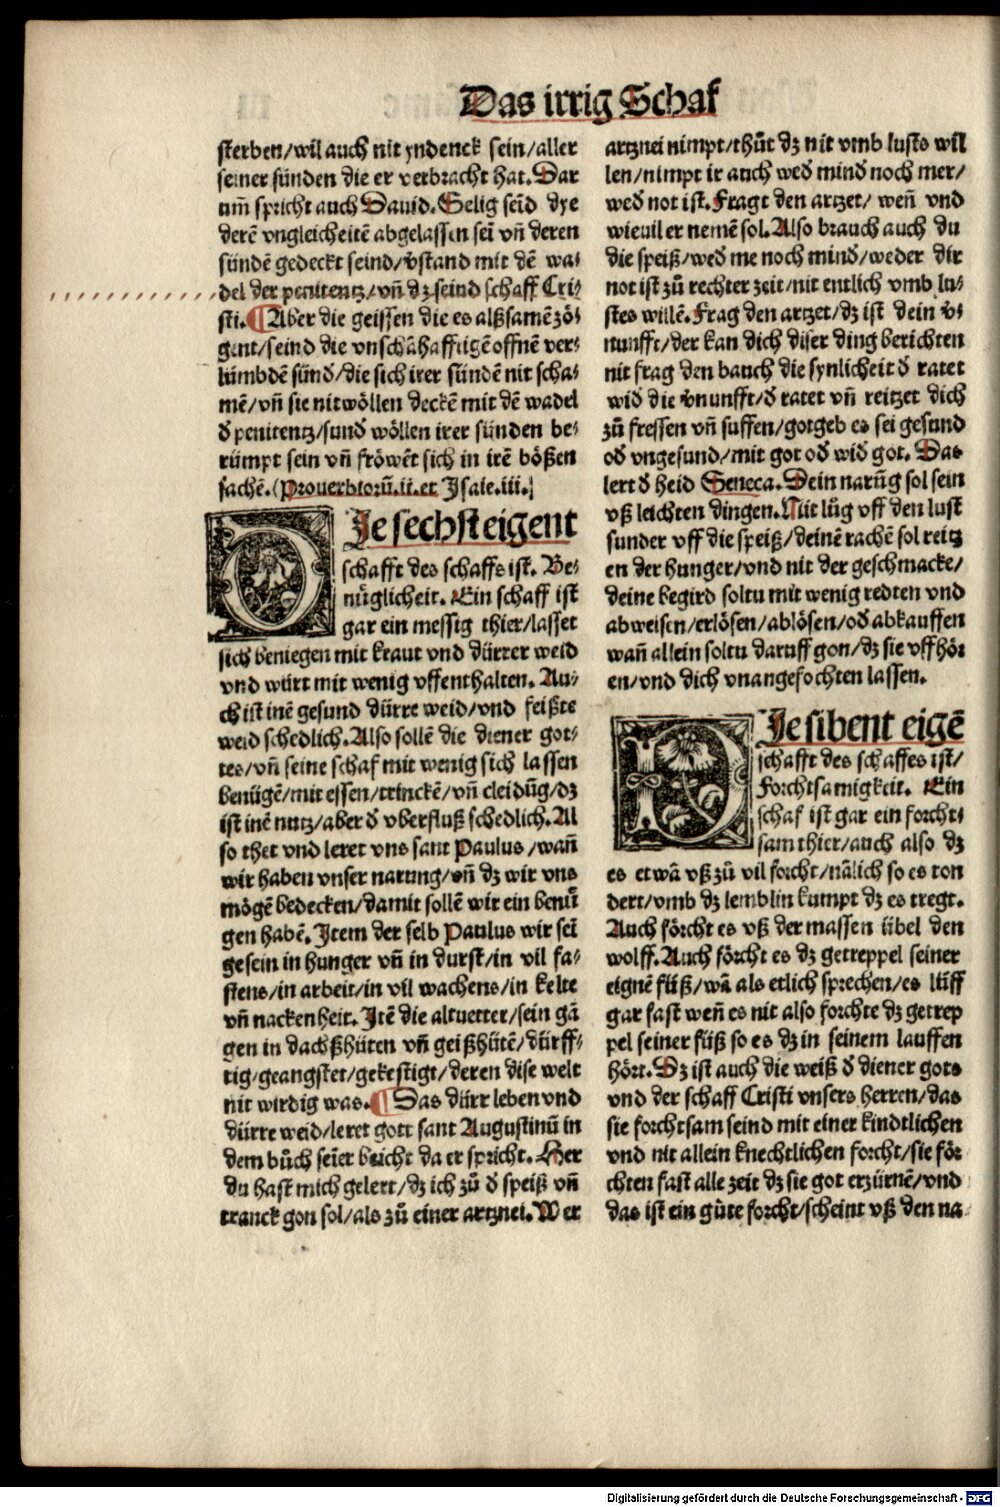 Das irrig Schaf
sterben/wil auch nit yndenck sein/aller
seiner sünden die er verbracht hat. Dar
um̄ spricht auch Dauid. Selig seīd dye
derē vngleicheitē abgelassen sei vn̄ deren
sündē gedeckt seind/v̄stand mit dē wa⸗
del der penitentz/vn̄ dz seind schaff Cri⸗
sti. ¶ Aber die geissen die es alßsamē zö⸗
gent/seind die vnschāhafftigē offnē ver⸗
lümbdē sünd/die sich irer sündē nit scha⸗
mē/vn̄ sie nit wöllen deckē mit dē wadel
đ penitentz/sund wöllen irer sünden be⸗
rümpt sein vn̄ fröwēt sich in irē bößen
sachē. (Prouerbiorū.ii.et Isaie.iii.)
DIe sechst eigent
schafft des schaffs ist. Be⸗
nüglicheit. Ein schaff ist
gar ein messig thier/lasset
sich beniegen mit kraut vnd dürrer weid
vnd würt mit wenig vffenthalten. Au⸗
ch ist inē gesund dürre weid/vnd feißte
weid schedlich. Also sollē die diener got⸗
tes/vn̄ seine schaf mit wenig sich lassen
benügē/mit essen/trinckē/vn̄ cleidūg/dz
ist inē nutz/aber đ vberfluß schedlich. Al
so thet vnd leret vns sant Paulus/wan̄
wir haben vnser narung/vn̄ dz wir vns
mögē bedecken/damit sollē wir ein benů
gen habē. Item der selb Paulus wir sei
gesein in hunger vn̄ in durst/in vil fa⸗
stens/in arbeit/in vil wachens/in kelte
vn̄ nackenheit. Itē die altuetter/sein gā
gen in dachßhüten vn̄ geißhütē/dürff⸗
tig/geangstet/gekestigt/deren dise welt
nit wirdig was. ¶ Das dürr leben vnd
dürre weid/leret gott sant Augustinū in
dem bůch seīer beicht da er spricht. Her
du hast mich gelert/dz ich zů đ speiß vn̄
tranck gon sol/als zů einer artznei. Wer
artznei nimpt/thůt dz nit vmb lusts wil
len/nimpt ir auch weđ mind noch mer/
weđ not ist. Fragt den artzet/ wen̄ vnd
wieuil er nemē sol. Also brauch auch du
die speiß/weđ me noch mind/weder dir
not ist zů rechter zeit/nit entlich vmb lu⸗
stes willē. Frag den artzet/dz ist dein v̄⸗
nunfft/der kan dich diser ding berichten
nit frag den bauch die synlicheit đ ratet
wiđ die v̄nunfft/đ ratet vn̄ reitzet dich
zů fressen vn̄ suffen/gotgeb es sei gesund
ođ vngesund/mit got ođ wiđ got. Das
lert đ heid Seneca. Dein narūg sol sein
vß leichten dingen. Nit lůg vff den lust
sunder vff die speiß/deinē rachē sol reitz
en der hunger/vnd nit der geschmacke/
deine begird soltu mit wenig redten vnd
abweisen/erlösen/ablösen/ođ abkauffen
wan̄ allein soltu daruff gon/dz sie vffhör
en/vnd dich vnangefochten lassen.
DIe sibent eigē
schafft des schaffes ist/
Forchtsamigkeit. Ein
schaf ist gar ein forcht⸗
sam thier/auch also dz
es etwā vß zů vil forcht/nālich so es ton
dert/vmb dz lemblin kumpt dz es tregt.
Auch förcht es vß der massen übel den
wolff. Auch förcht es dz getreppel seiner
eignē füß/wā als etlich sprechen/es lüff
gar fast wen̄ es nit also forchte dz getrep
pel seiner füß so es dz in seinem lauffen
hört. Dz ist auch die weiß đ diener gots
vnd der schaff Cristi vnsers herren/das
sie forchtsam seind mit einer kindtlichen
vnd nit allein knechtlichen forcht/sie för
chten fast alle zeit dz sie got erzürnē/vnd
das ist ein gůte forcht/scheint vß den na⸗
Digitalisierung gefördert durch die Deutsche Forschungsgemeinschaft - DFG